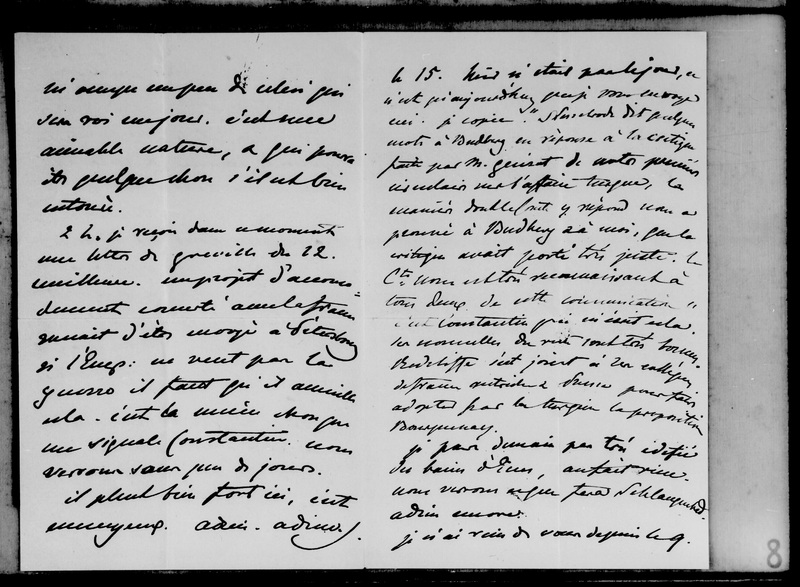 m'occupe un peu de celui qui
sera roi un jour. c'est une
aimable nature, a qui pourra
être quelque chose s'il est bien
entouré.
2 h. je reçois dans ce moment
une lettre de Greville du 12.
meilleure. un projet d'accom-
dement concerté avec la france
venait d'être envoyé à Petersbourg
si l'Emp: ne veut pas la
guerre il faut qu'il accueille
cela. c'est la même chose que
me signale Constantin. nous
verrons sous peu de jours.
il pleut bien fort ici, c'est
ennuyeux. adieu. adieu.
le 15. hier n'était pas le jour, ce
n'est qu'aujourd'hui que je vous envoye
ceci. je copie. " Nesselrode dit quelques
mots à Budberg en réponse à la critique
faite par M. Guizot de notre première
circulaire sur l'affaire turque, la
manière dont le Cte y répond
prouve à Budberg & à moi, que la
critique avait porté très juste. le
Cte vous est très reconnaissant à
tous deux de cette communication "
c'est Constantin qui m'écrit cela.
les nouvelles de sont très bonnes.
Redcliffe s'est joint à ses collègues
de france autriche & Prusse pour faire
adopter par les turques la proposition
Bourqueney.
je pars demain pas très édifiée
des bains d'Ems, au fait rien.
nous verrons ce que fera Schlangenbad.
adieu encore.
je n'ai rien de vous depuis le 9.
8